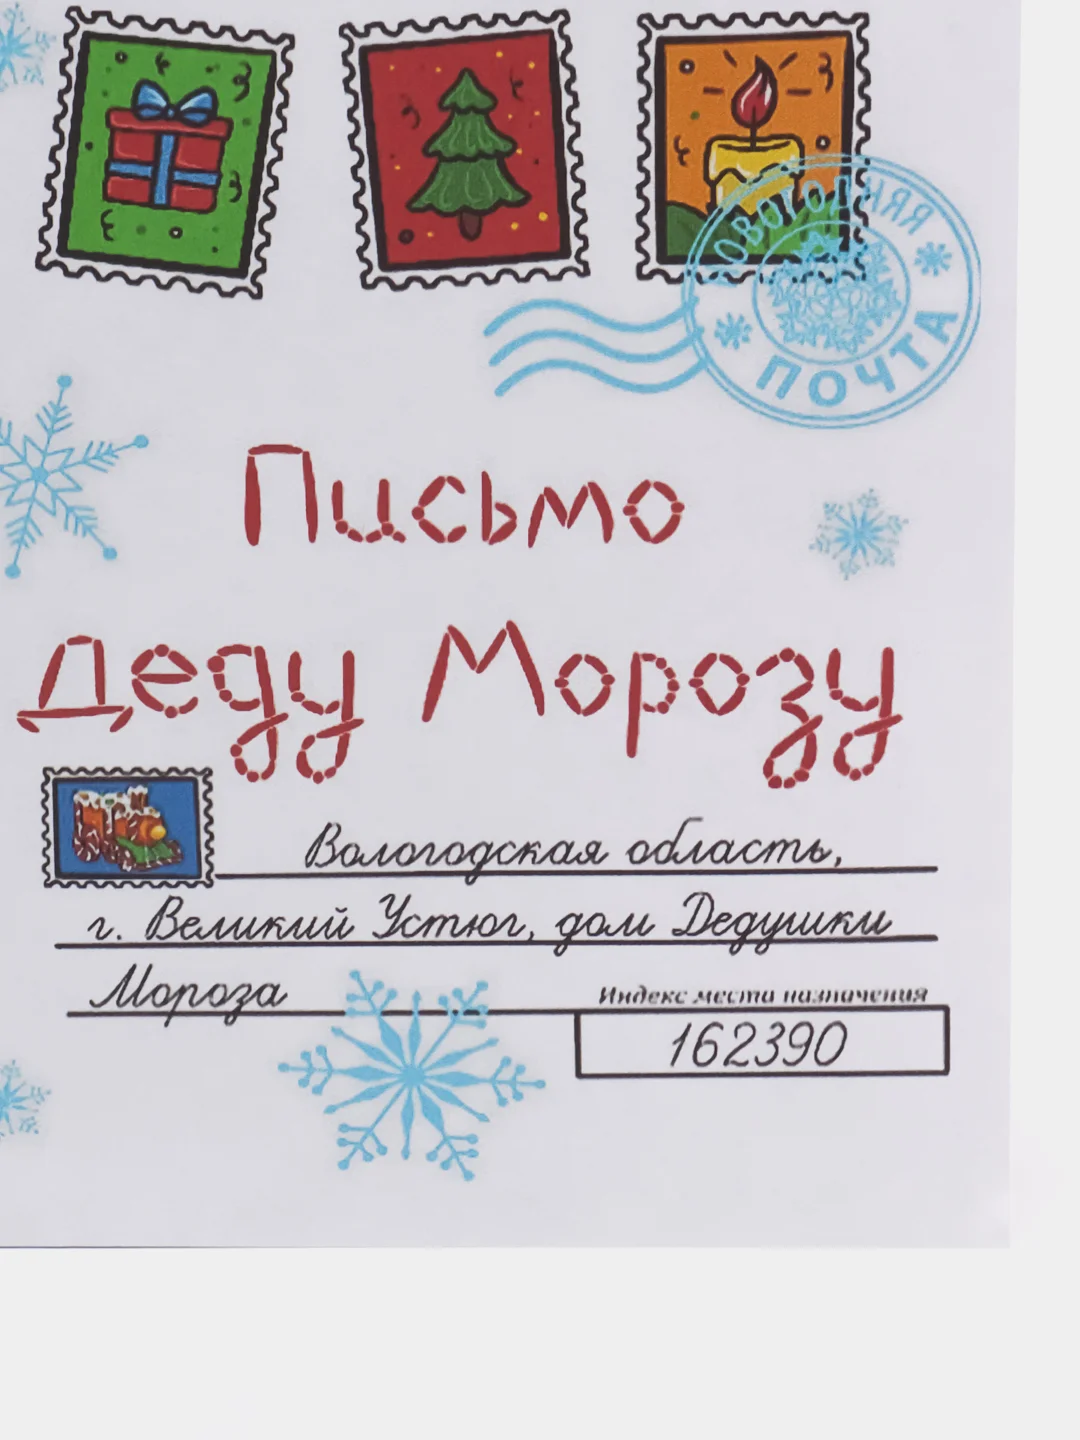 НОВОГОДНЯЯ
ПОЧТА
Письмо
Деду Морозу
Вологодская область,
г. Великий Устюг, дом Дедушки
Мороза
Индекс места назначения
162390